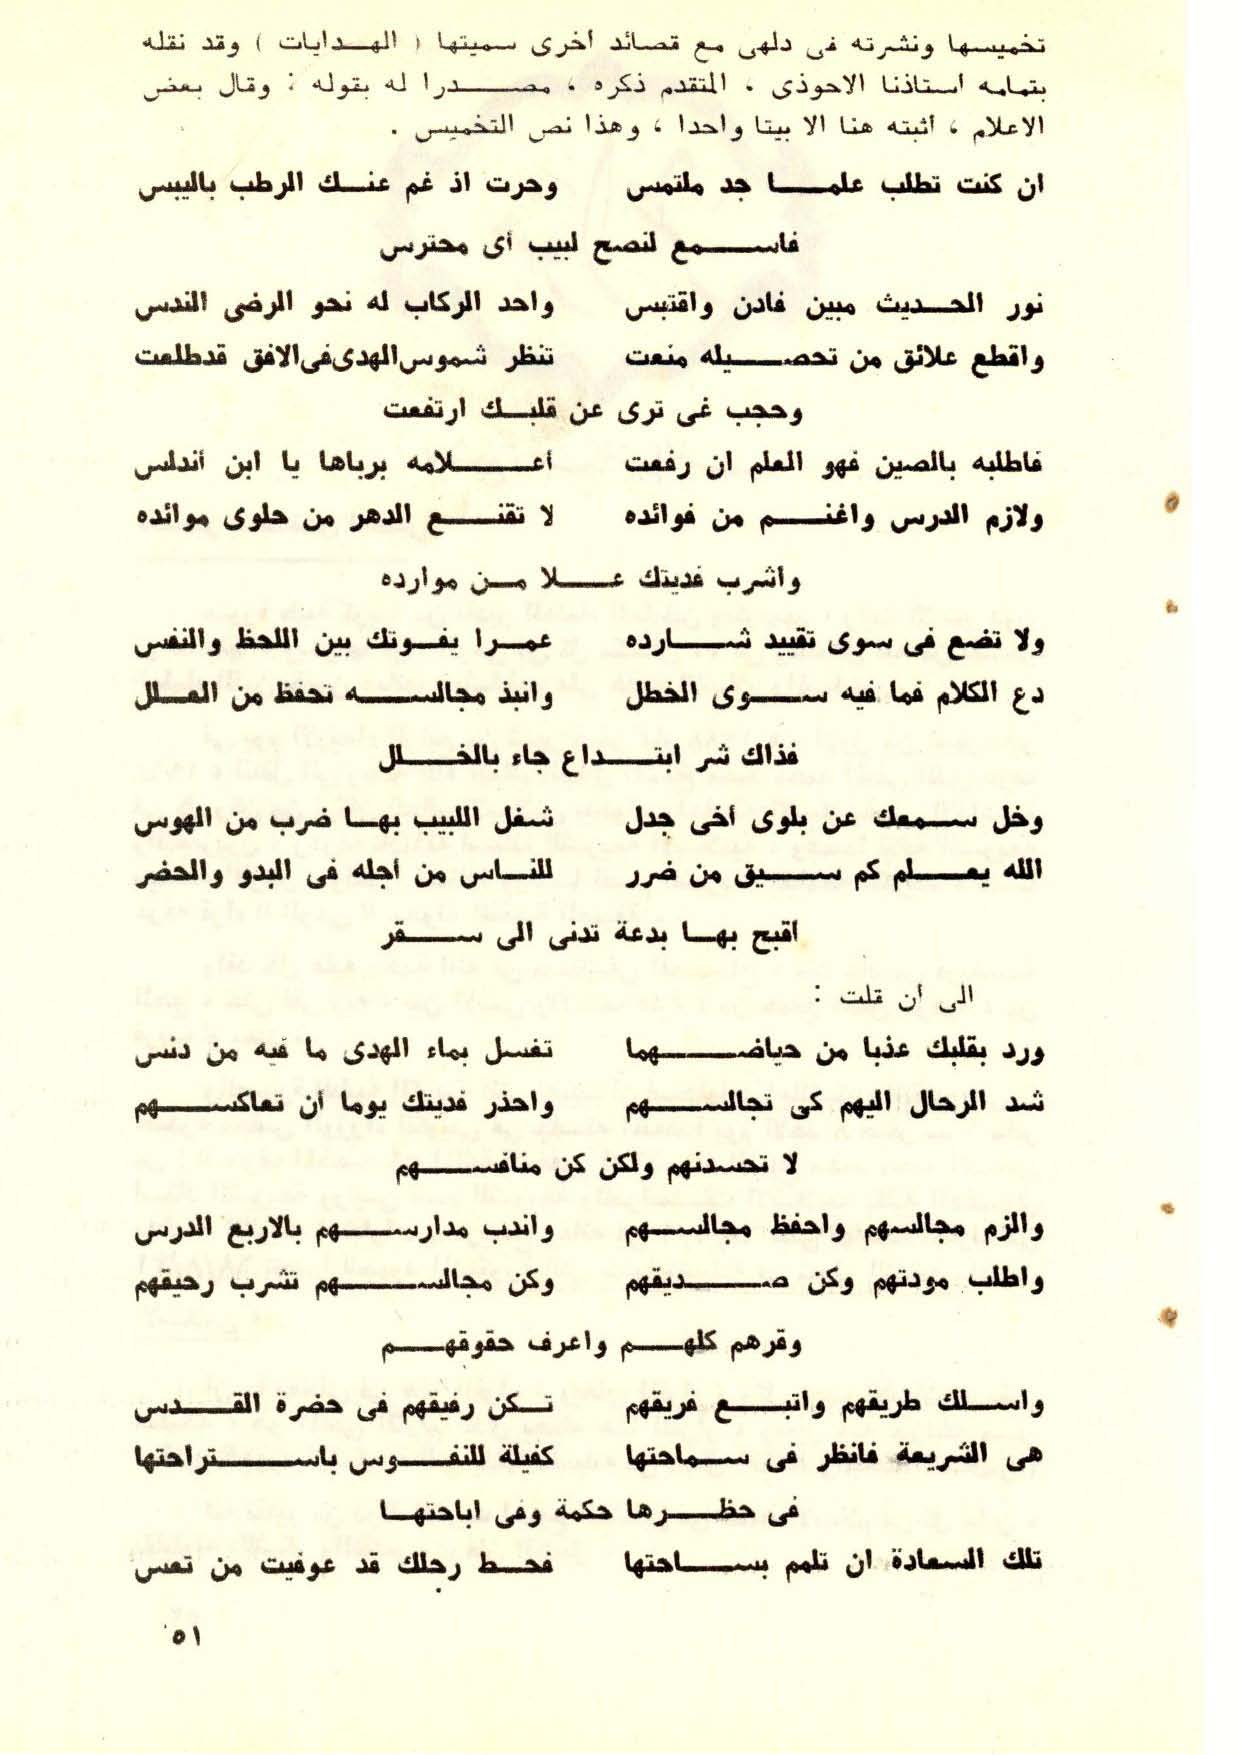 تخميسها ونشرته فى دلهى مع قصائد أخرى سميتها ( الهدايات ) وقد نقله
بتمامه استاذنا الاحوذى ، المتقدم ذكره ، مصدرا له بقوله : وقال بعض
الاعلام ، أثبته هنا الا بيتا واحدا ، وهذا نص التخميس .
ان كنت تطلب علما جد ملتمس وحرت اذ غم عنك الرطب باليبس
فاسمع لنصح لبيب أى محترس
نور الحديث مبين فادن واقتبس واحد الركاب له نحو الرضى الندس
واقطع علائق من تحصيله منعت تنظر شموس الهدى فى الافق قد طلعت
وحجب غى ترى عن قلبك ارتفعت
فاطلبه بالصين فهو العلم ان رفعت أعلامه برباها يا ابن أندلس
ولازم الدرس واغنم من فوائده لا تقنع الدهر من حلوى موائده
واشرب فديتك علا من موارده
ولا تضع فى سوى تقييد شارده عمرا يفوتك بين اللحظ والنفس
دع الكلام فما فيه سوى الخطل وانبذ مجالسه تحفظ من العلل
فذاك شر ابتداع جاء بالخلل
وخل سمعك عن بلوى أخى جدل شغل اللبيب بها ضرب من الهوس
الله يعلم كم سيق من ضرر للناس من أجله فى البدو والحضر
أقبح بها بدعة تدنى الى سقر
الى أن قلت :
ورد بقلبك عذبا من حياضهما تغسل بماء الهدى ما فيه من دنس
شد الرحال اليهم كى تجالسهم واحذر فديتك يوما أن تعاكسهم
لا تحسدنهم ولكن كن منافسهم
والزم مجالسهم واحفظ مجالسهم واندب مدارسهم بالاربع الدرس
واطلب مودتهم وكن صديقهم وكن مجالسهم تشرب رحيقهم
وقرهم كلهم واعرف حقوقهم
واسلك طريقهم واتبع فريقهم تكن رفيقهم فى حضرة القدس
هى الشريعة فانظر فى سماحتها كفيلة للنفوس باستراحتها
فى حظرها حكمة وفى اباحتها
تلك السعادة ان تلمم بساحتها فحط رحلك قد عوفيت من تعس
٥١